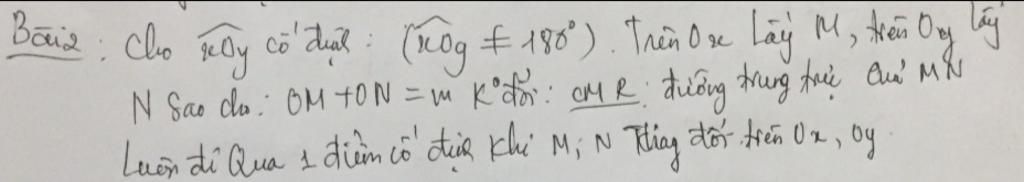 Bài 2: Cho xOy cố định: (xOy ≠ 180°). Trên Ox Lấy M, trên Oy lấy
N Sao cho: OM + ON = m K° đổi: CMR: đường trung trực của MN
Luôn đi Qua 1 điểm cố định khi M; N Thay đổi trên Ox, Oy